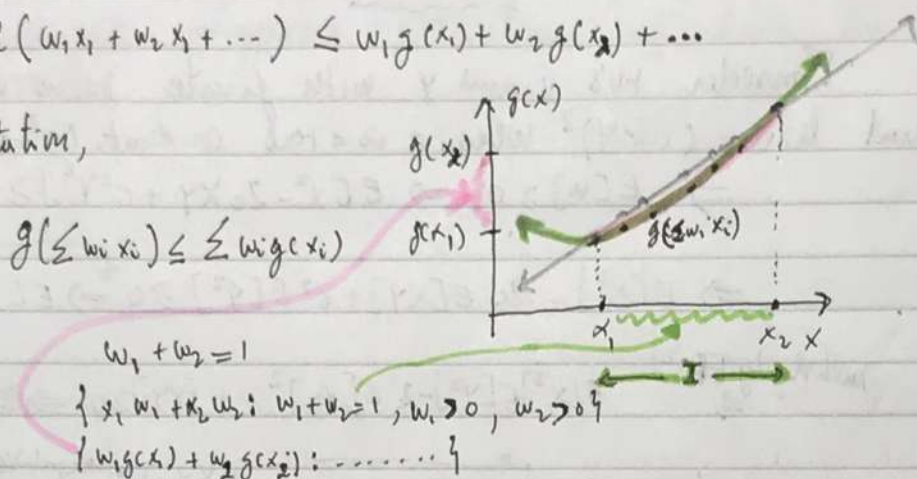 (w₁x₁ + w₂x₁ + ...) ≤ w₁g(x₁) + w₂g(x₂) + ...
g(x)
g(x₂)
g(Σwᵢxᵢ) ≤ Σwᵢg(xᵢ)
g(x₁)
g(Σwᵢxᵢ)
x₁
x₂
x
I
w₁ + w₂ = 1
{x₁w₁ + x₂w₂: w₁+w₂=1, w₁>0, w₂>0}
{w₁g(x₁) + w₂g(x₂): ........}